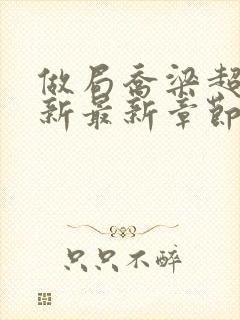 做局乔梁超
新最新章节
只只不醉